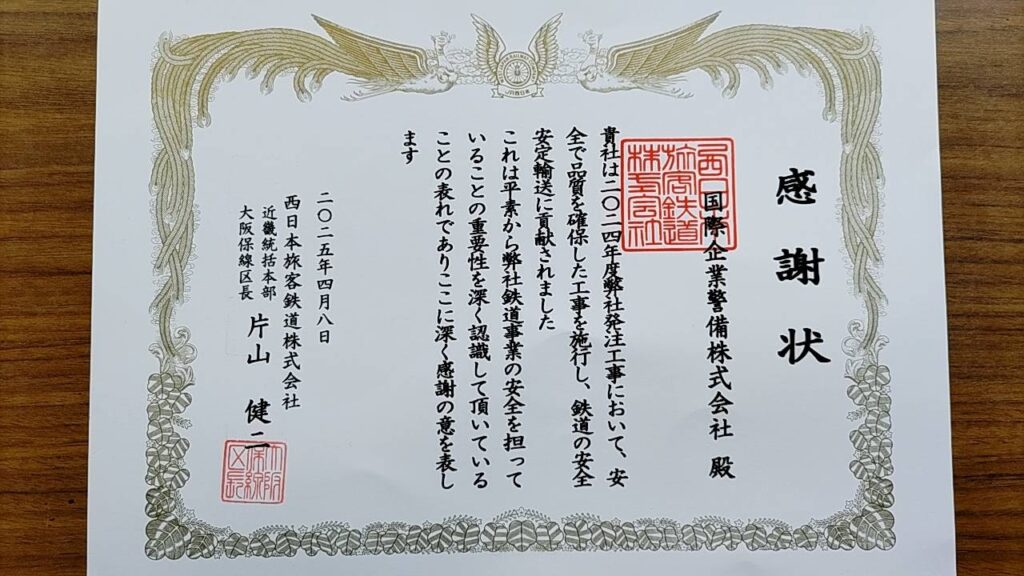 感謝状
国際企業警備株式会社 殿
貴社は二〇二四年度弊社発注工事において、安
全で品質を確保した工事を施行し、鉄道の安全
安定輸送に貢献されました
これは平素から弊社鉄道事業の安全を担って
いることの重要性を深く認識して頂いている
ことの表れでありここに深く感謝の意を表し
ます
二〇二五年四月八日
西日本旅客鉄道株式会社
近畿統括本部
大阪保線区長
片山 健二
西日本旅客鉄道株式会社
大阪保線区長
JR西日本